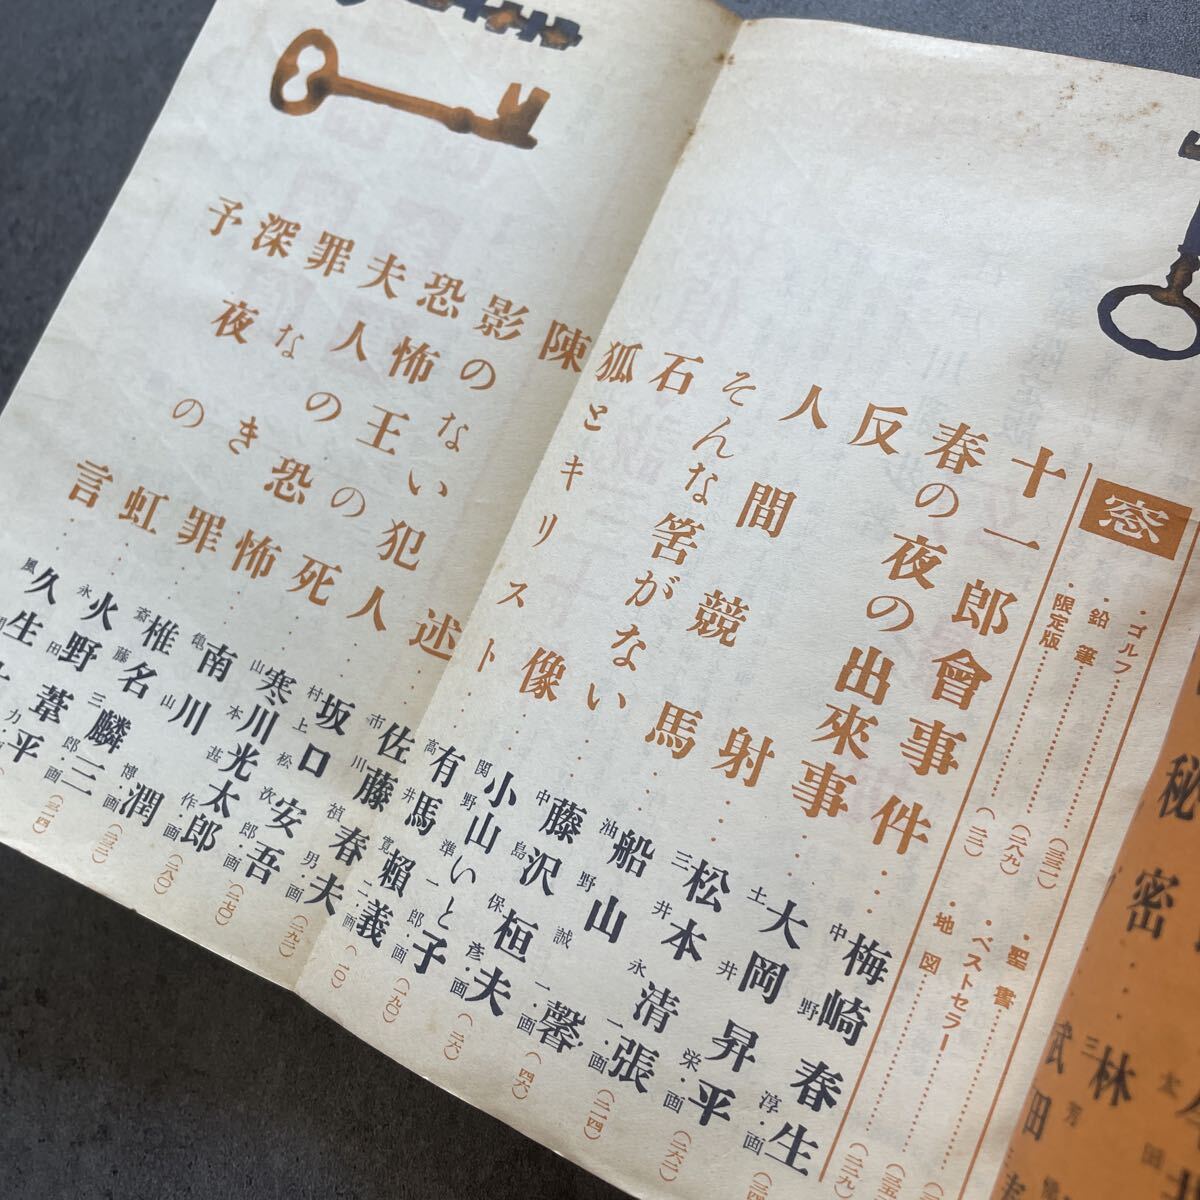 秘密
林
武田
窓
・ゴルフ……(三三一)
・鉛筆……(二八九)
・限定版……(一三)
・聖書……
・ベストセラー……
・地図……
十一郎會事件……梅崎春生 中野淳・画
春の夜の出來事……大岡昇平 土井栄・画(二六二)
反射……松本清張 三井永一・画(二一四)
人間競馬……船山馨 油野誠一・画(四六)
そんな筈がない……藤沢桓夫 中島保彦・画(二六)
石像……小山いと子 関野準一郎・画(一九〇)
狐とキリスト……有馬頼義 高井寛二・画(一〇)
陳述……佐藤春夫 市川禎男・画(二九二)
影のない犯人……坂口安吾 村上松次郎・画(二七〇)
恐怖王の死……寒川光太郎 山本甚作・画(二八〇)
夫人の恐怖……南川潤 亀山博・画(三三二)
罪なき罪……椎名麟三 斎藤三郎・画(三一四)
深夜の虹……火野葦平 永田力
予言……久生